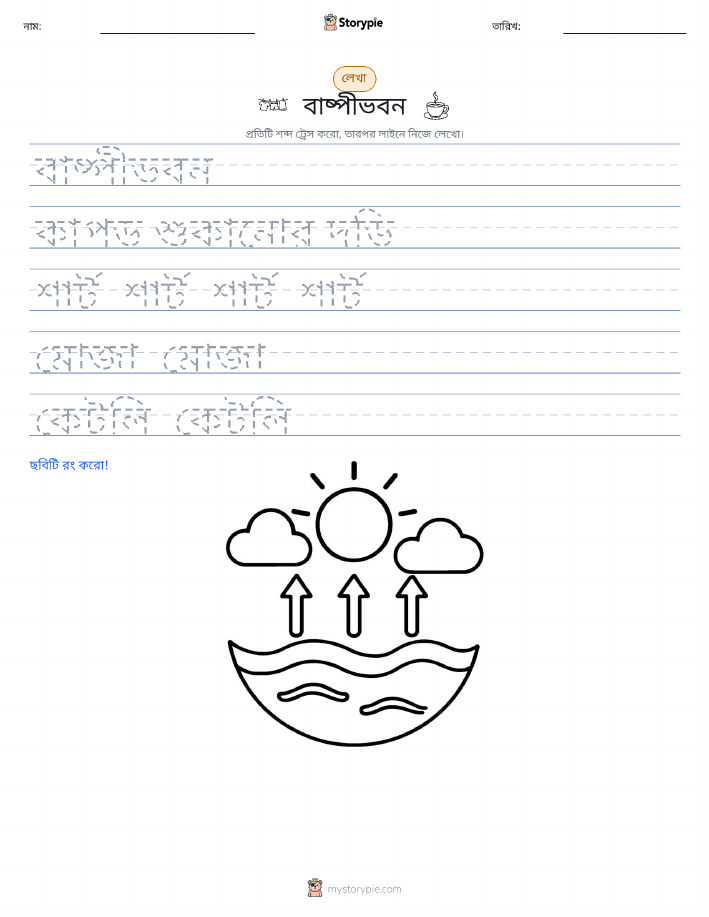 নাম:
Storypie
তারিখ:
লেখা
বাষ্পীভবন
প্রতিটি শব্দ ট্রেস করো, তারপর লাইনে নিজে লেখো।
বাষ্পীভবন
কাপড় শুকানোর দড়ি
শার্ট শার্ট শার্ট শার্ট
মোজা মোজা
কেটলি কেটলি
ছবিটি রং করো!
mystorypie.com